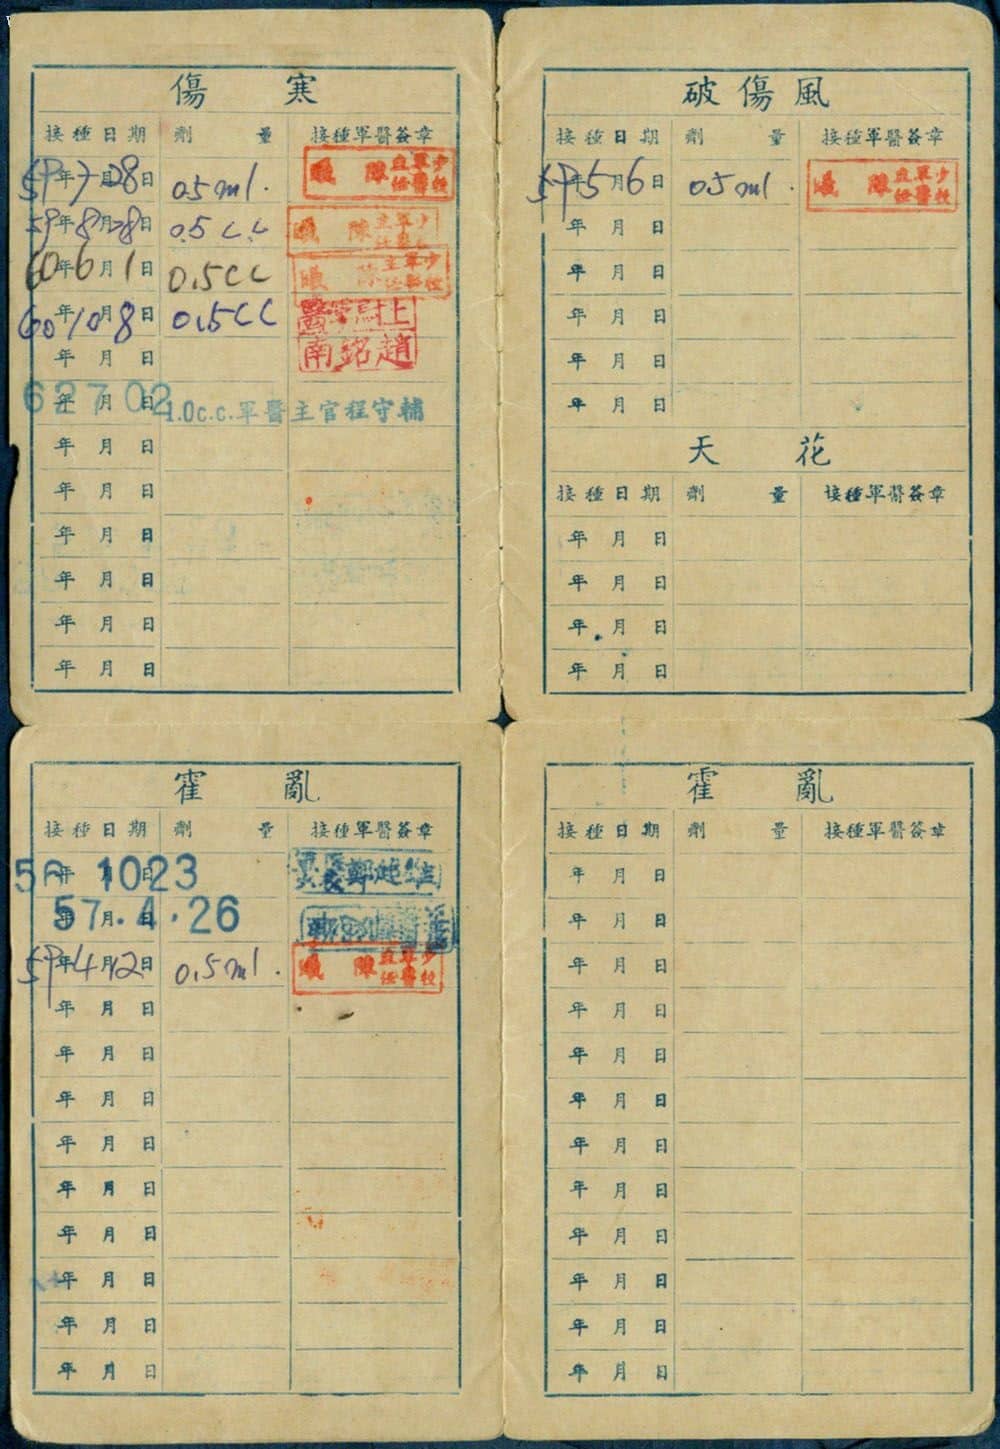 傷寒
接種日期 劑量 接種軍醫簽章
59年7月28日 0.5ml. 少校軍醫主任 陳
59年8月28日 0.5cc 少校軍醫主任 陳
60年6月1日 0.5cc 少校軍醫主任 陳
60年10月8日 0.5cc 上尉 醫
年 月 日 趙銘南
62年7月02日 1.0c.c. 軍醫主官程守輔
年 月 日
年 月 日
年 月 日
年 月 日
年 月 日
年 月 日
破傷風
接種日期 劑量 接種軍醫簽章
59年5月6日 0.5ml. 少校軍醫主任 陳
年 月 日
年 月 日
年 月 日
年 月 日
年 月 日
天花
接種日期 劑量 接種軍醫簽章
年 月 日
年 月 日
年 月 日
年 月 日
霍亂
接種日期 劑量 接種軍醫簽章
年 月 日 1023 鄭
年 月 日 57.4.26
59年4月12日 0.5ml. 少校軍醫主任 陳
年 月 日
年 月 日
年 月 日
年 月 日
年 月 日
年 月 日
年 月 日
年 月 日
年 月 日
霍亂
接種日期 劑量 接種軍醫簽章
年 月 日
年 月 日
年 月 日
年 月 日
年 月 日
年 月 日
年 月 日
年 月 日
年 月 日
年 月 日
年 月 日
年 月 日